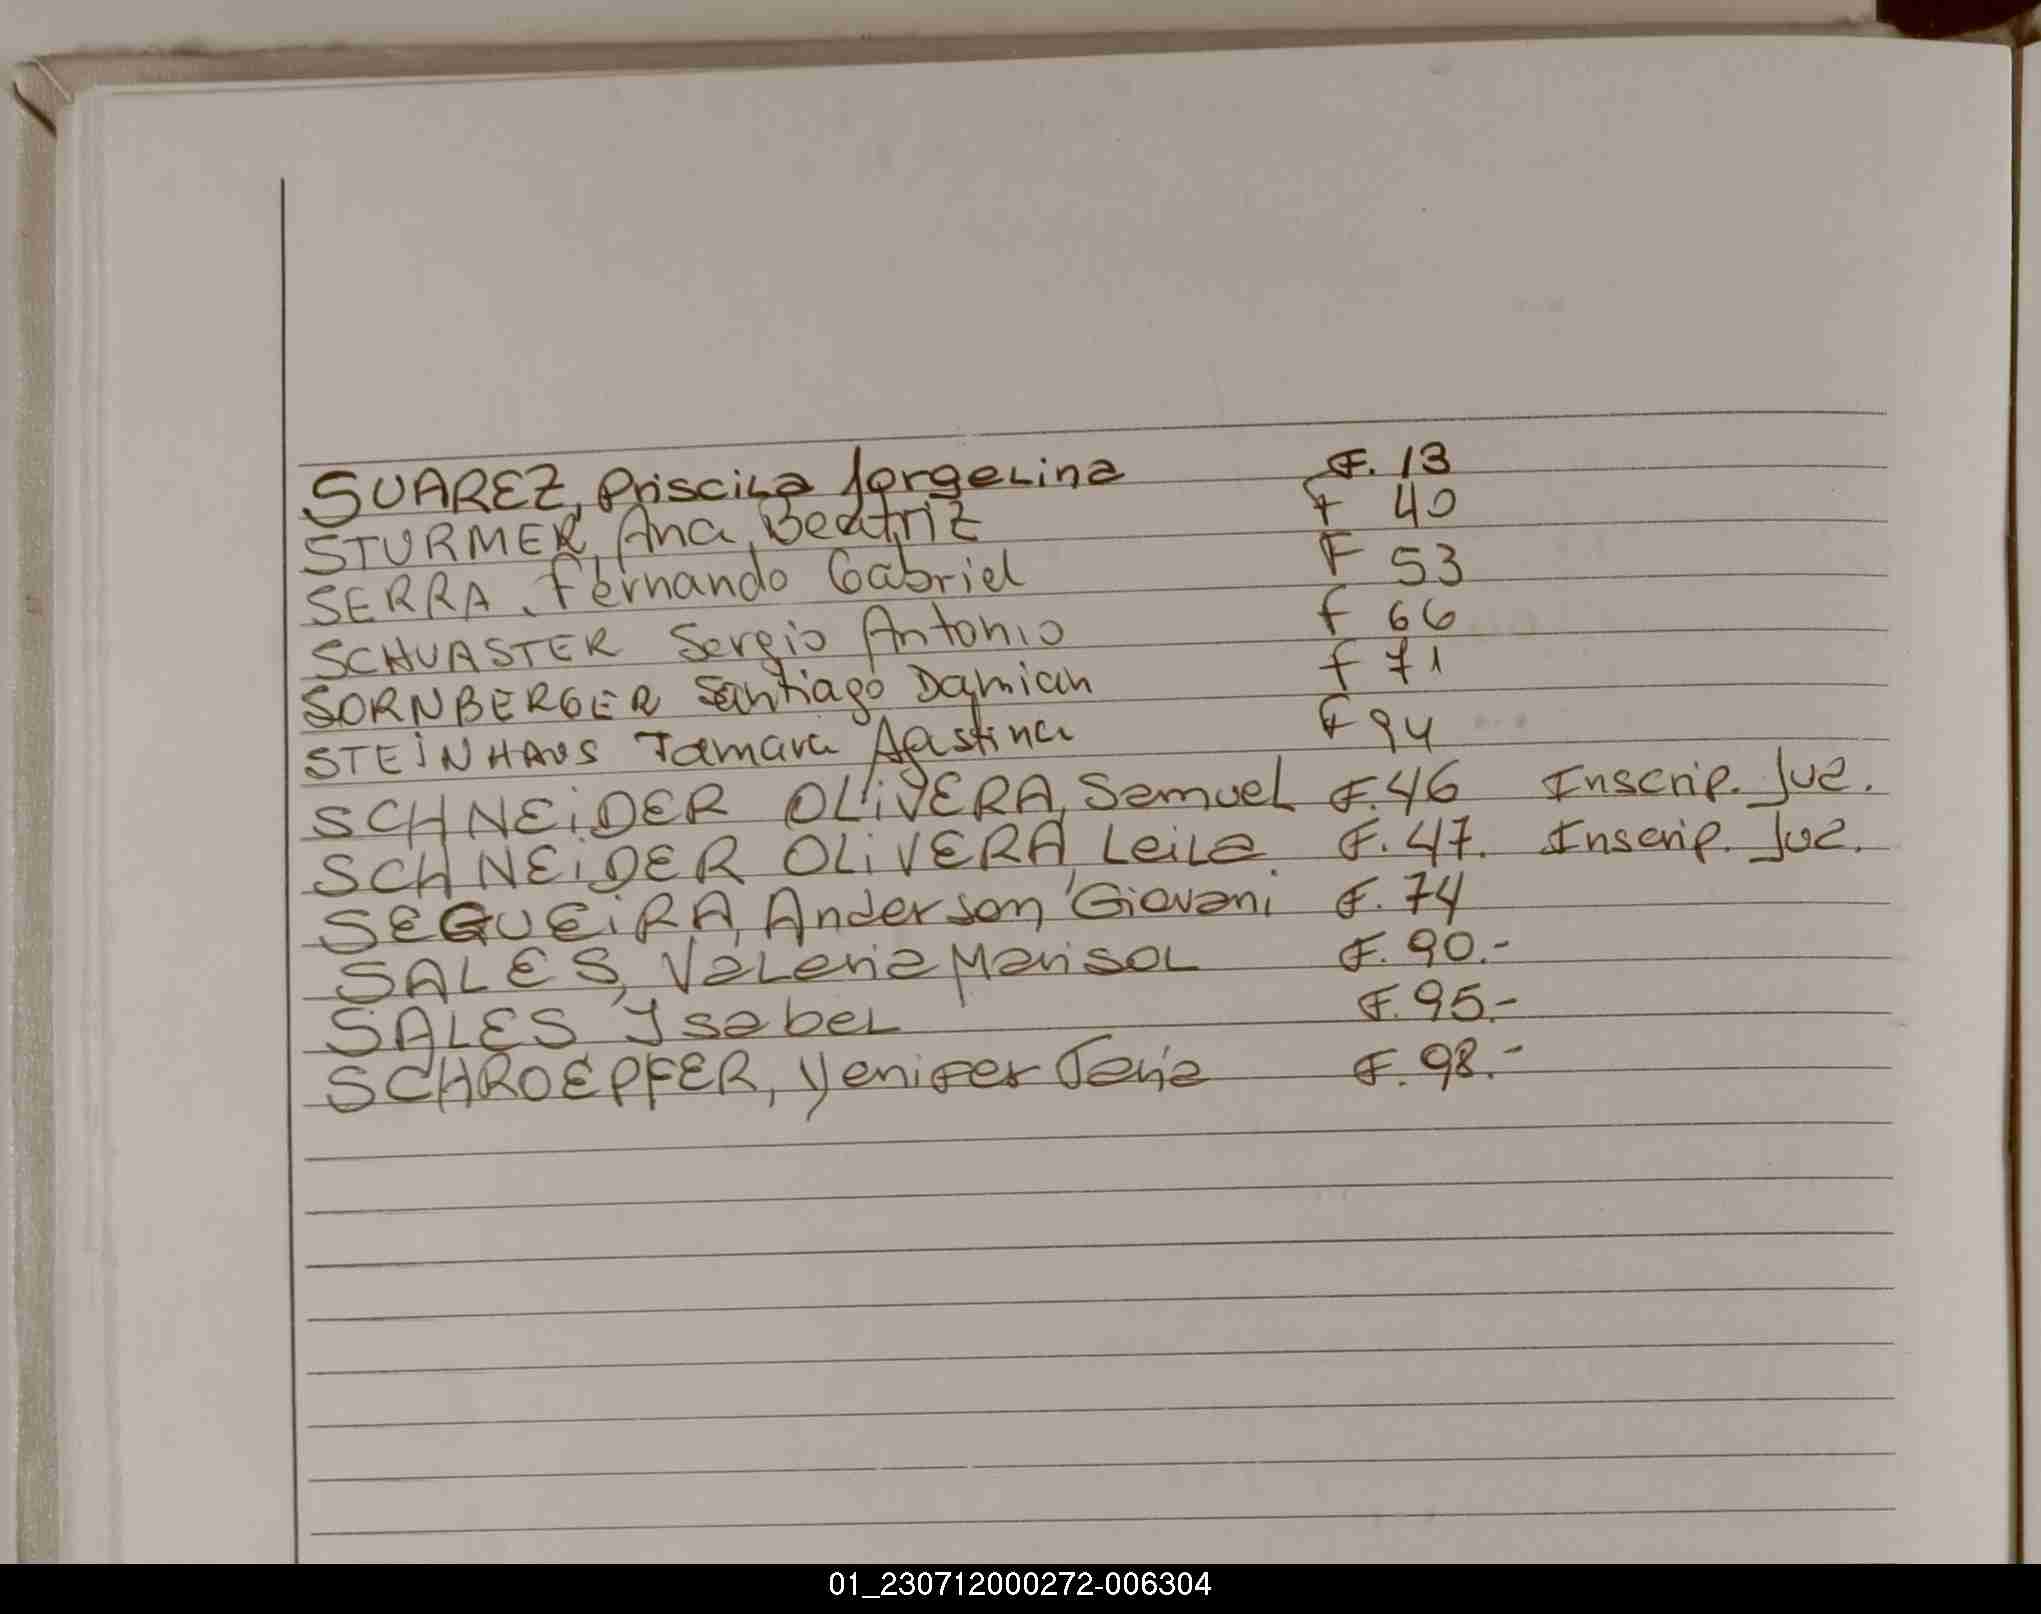 SUAREZ, Priscila Jorgelina F. 13
STURMER, Ana Beatriz F 40
SERRA, Fernando Gabriel F 53
SCHUASTER Sergio Antonio F 66
SORNBERGER Santiago Damian F 71
STEINHAUS Tamara Agustina F 94
SCHNEIDER OLIVERA, Samuel F. 46 Inscrip. Juz.
SCHNEIDER OLIVERA, Leila F. 47. Inscrip. Juz.
SEQUEIRA, Anderson Giovani F. 74
SALES, Valeria Marisol F. 90.-
SALES Isabel F. 95.-
SCHROEPFER, Yenifer F. 98.-
01_230712000272-006304